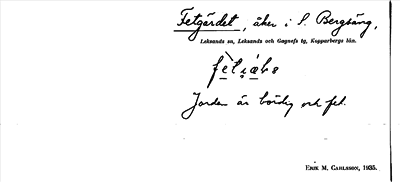 Fetgärdet, åker i S. Bergsäng,
Leksands sn, Leksands och Gagnefs tg, Kopparbergs län.
Jorden är bördig och fet.
Erik M. Carlsson, 1935.